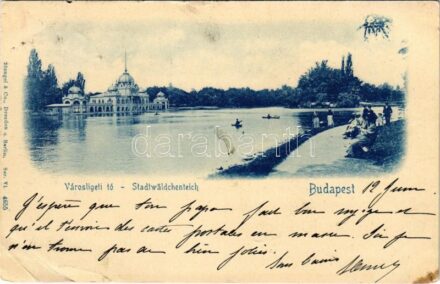 Stengel & Co., Dresden u. Berlin. Ser. VI. 4806
darabanth
Városligeti tó - Stadtwäldchenteich
Budapest 12 Juin
J'espère que ton papa fait bon voyage et
qu'il t'envoie des cartes postales en masse. Si je
n'en trouve pas de bien jolies.